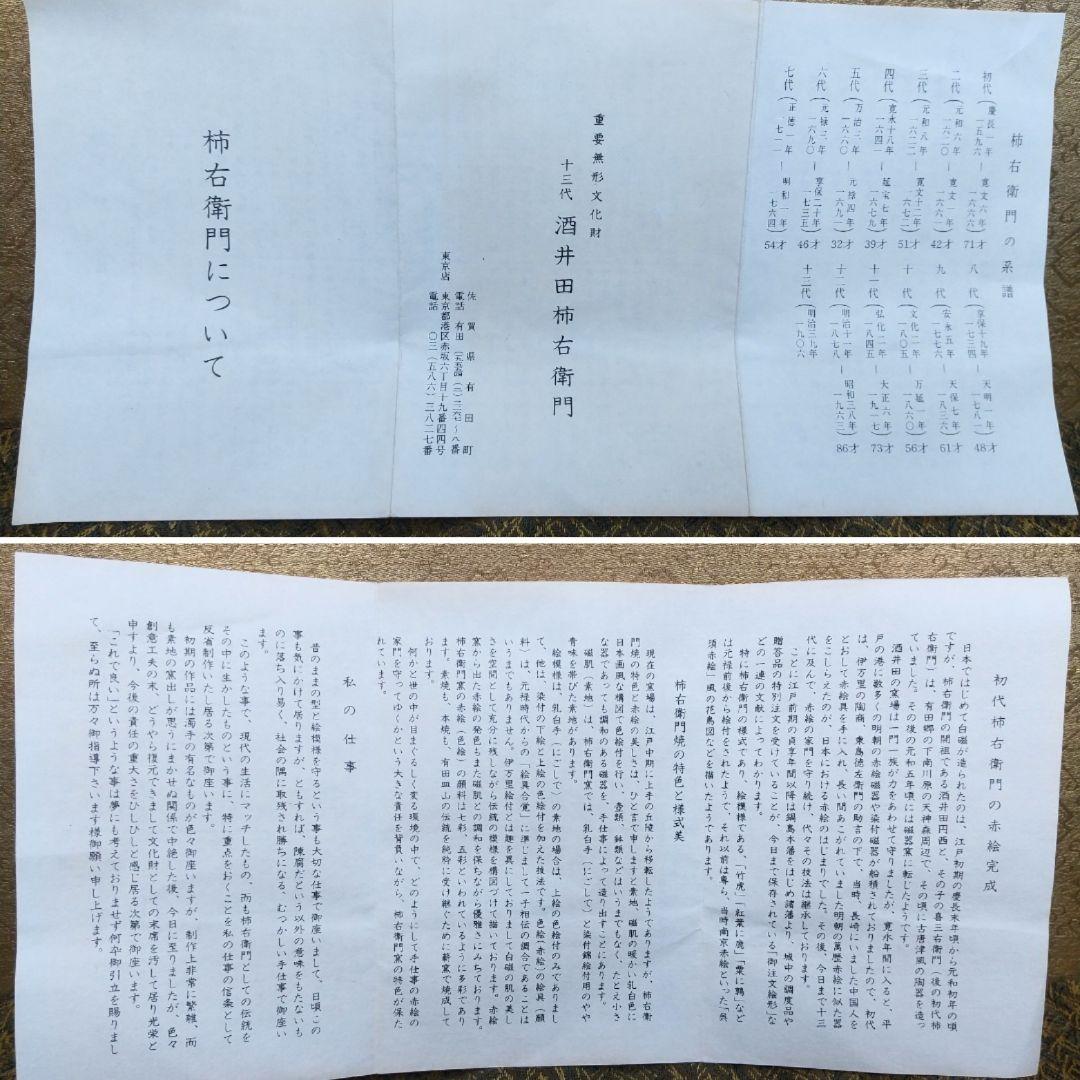 柿右衛門の系譜
初代(慶長一年 一五九六 ― 寛文六年 一六六六)71才
二代(元和六年 一六二〇 ― 寛文一年 一六六一)42才
三代(元和八年 一六二二 ― 寛文十二年 一六七二)51才
四代(寛永十八年 一六四一 ― 延宝七年 一六七九)39才
五代(万治三年 一六六〇 ― 元禄四年 一六九一)32才
六代(元禄三年 一六九〇 ― 享保二十年 一七三五)46才
七代(正徳一年 一七一一 ― 明和一年 一七六四)54才
八代(享保十九年 一七三四 ― 天明一年 一七八一)48才
九代(安永五年 一七七六 ― 天保七年 一八三六)61才
十代(文化二年 一八〇五 ― 万延一年 一八六〇)56才
十一代(弘化二年 一八四五 ― 大正六年 一九一七)73才
十二代(明治十一年 一八七八 ― 昭和三八年 一九六三)86才
十三代(明治三九年 一九〇六
重要無形文化財
十三代 酒井田柿右衛門
佐賀県有田町
電話 有田
東京店 東京都港区赤坂六丁目十九番四四号
電話 〇三(五八六)二八二七番
柿右衛門について
初代柿右衛門の赤絵完成
日本ではじめて白磁が造られたのは、江戸初期の慶長末年頃から元和初年の頃
ですが、柿右衛門の開祖である酒井田円西と、その子の喜三右衛門(後の初代柿
右衛門)は、有田郷の下南川原の天神森周辺で、その頃に古唐津風の陶器を造っ
ていました。その後の元和五年頃には磁器窯に転じたようです。
酒井田の窯場は一門一族が力をあわせて守りましたが、寛永年間に入ると、平
戸の港に数多くの明朝の赤絵磁器や染付磁器が舶積されておりましたので、初代
は、伊万里の陶商、東島徳左衛門の助言の下で、当時、長崎にいました中国人を
とおして赤絵具を手に入れ、長い間あこがれていました明朝の萬歴赤絵に似た器
をこしらえたのが、日本における赤絵のはじまりでした。その後、今日まで十三
代に及んで、赤絵の家門を守り続け、代々その技法は継承しております。
ことに江戸前期の貞享年間以降は鍋島本藩をはじめ諸藩より、城中の調度品や
贈答品の特別注文を受けていることが、今日まで保存されている「御注文絵形」な
どの一連の文献によってわかります。
特に柿右衛門の様式であり、絵模様である、「竹虎」「紅葉に鹿」「粟に鶉」など
は元禄前後から絵付をされたようでして、それ以前は専ら、当時南京赤絵といった「呉
須赤絵」風の花鳥図などを描いたようであります。
柿右衛門焼の特色と様式美
現在の窯場は、江戸中期に上手の丘陵から移転したようでありますが、柿右衛
門焼の特色と赤絵の美しさは、ひと言で申しますと素地、磁肌の暖かい乳白色に
日本画風な構図で色絵付を行い、壺類、鉢類などはいうまでもなく、たとえ小さ
な器であっても調和のある磁器を、手仕事によって造り出すことにあります。
磁肌(素地)は、柿右衛門窯では、乳白手(にごしで)と染付錦絵付用のやや
青味を帯びた素地があります。
絵模様は、乳白手(にごしで)の素地の場合は、上絵の色絵付のみでありまし
て、他は、染付の下絵と上絵の色絵付を加えた技法です。色絵(赤絵)の絵具(顔
料)は、元禄時代からの「絵具合覚」に準じまして一子相伝の調合であることは
いうまでもありません。伊万里絵付とは趣を異にしておりまして白磁の肌の美し
さを空間として充分に残しながら伝統の模様を構図づけて描いております。赤絵
窯から出た赤絵の発色もまた磁肌との調和を保ちながら優雅さにみちております。
柿右衛門窯の赤絵(色絵)の顔料は七彩、五彩といわれているように多彩であり
ます。素焼も、本焼も、有田皿山の伝統を純粋に受け継ぐために薪窯で焼成して
おります。
何かと世の中が目まぐるしく変る環境の中で、どのようにして手仕事の赤絵の
家門を守ってゆくかという大きな責任を背負いながら、柿右衛門窯の特色が保た
れています。
私の仕事
昔のままの型と絵模様を守るという事も大切な仕事で御座いまして、日頃この
事も気にかけて居りますが、ともすれば、陳腐だという以外の意味をもたないも
のに落ち入り易く、社会の隅に取残され勝ちになる、むつかしい手仕事で御座い
ます。
このような事で、現代の生活にマッチしたもの、而も柿右衛門としての伝統を
その中に生かしたものという事に、特に重点をおくことを私の仕事の信条として
反省制作いたし居る次第で御座います。
初期の作品には濁手の有名なものが色々御座いますが、制作上非常に繁雑、而
も素地の窯出しが思うにまかせぬ関係で中絶した後、今日に至りましたが、色々
創意工夫の末、どうやら復元できまして文化財としての末席を汚して居り光栄と
申すより、今後の責任の重大さをひしひしと感じ居る次第で御座います。
「これで良い」というような事は夢にも考えておりませず何卒御引立を賜りまし
て、至らぬ所は万々御指導下さいます様御願い申し上げます。